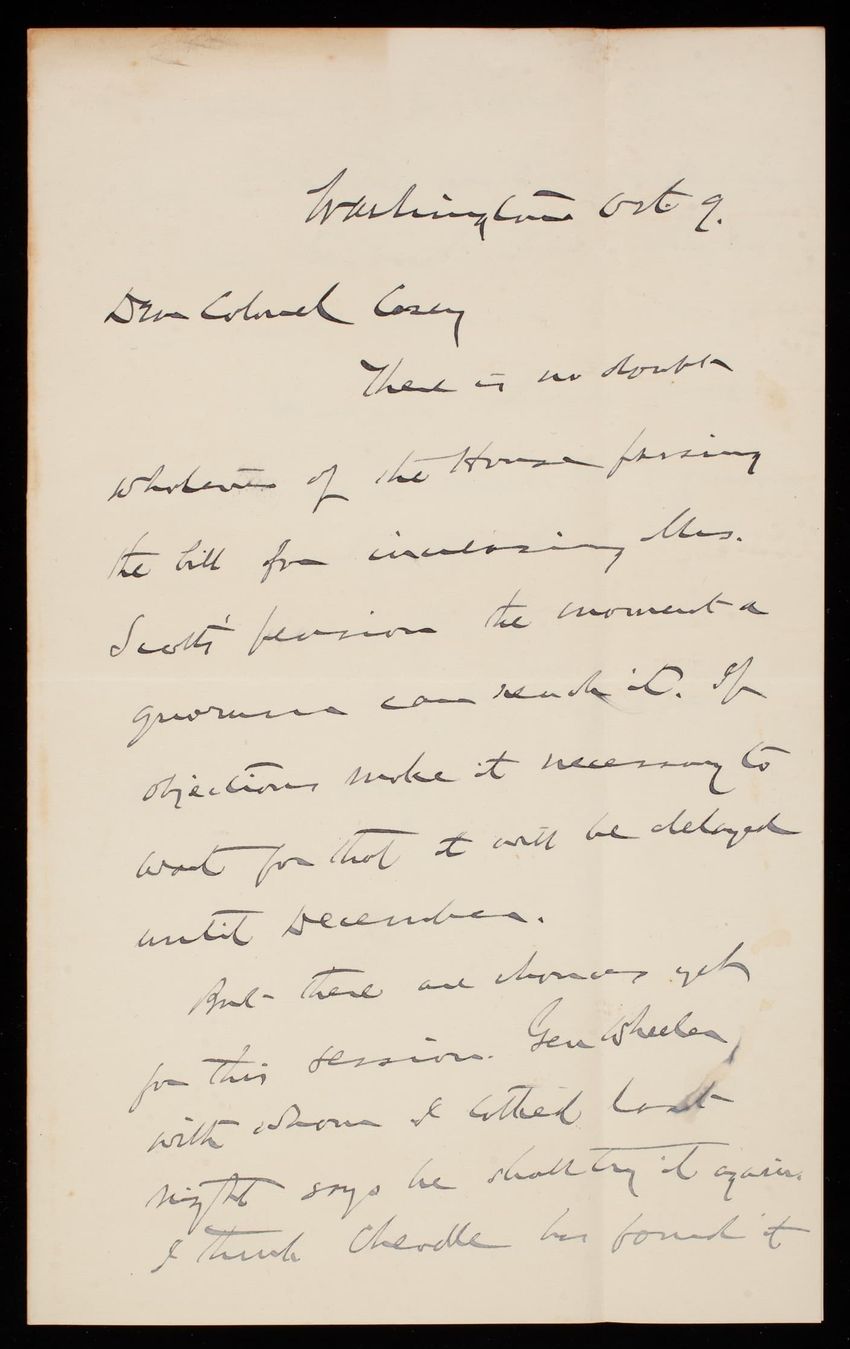 Washington Oct. 9.
Dear Colonel Casey
There is no doubt
whatever of the House passing
the bill for increasing Mrs.
Scott's pension the moment a
quorum can reach it. If
objections make it necessary to
wait for that it will be delayed
until December.
But there are chances yet
for this session. Gen Wheeler,
with whom I talked last
night says he shall try it again.
I think Cheadle has found it